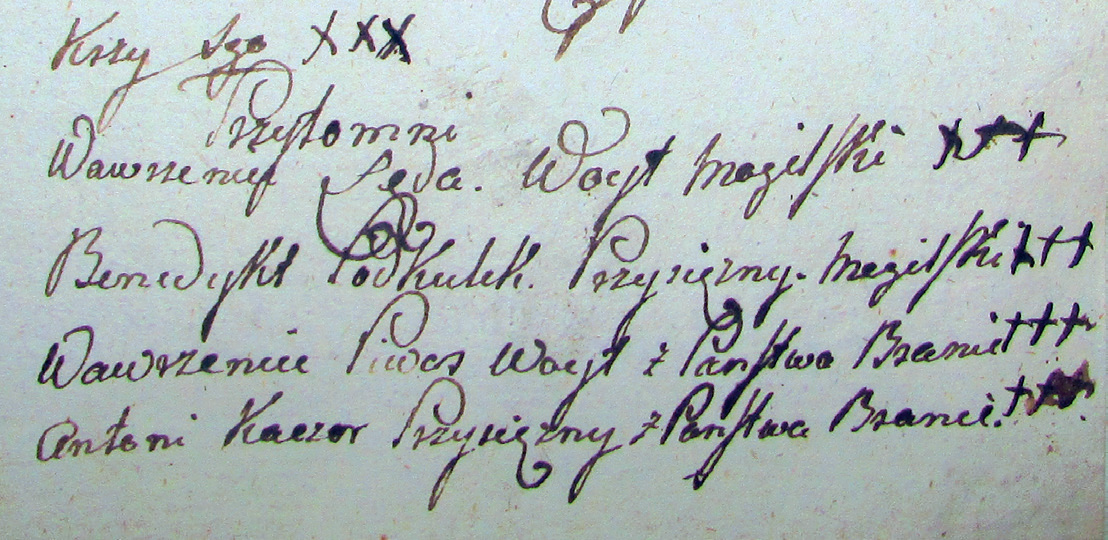 Krzy Szo XXX
Przytomni
Wawrzeniec Lęda. Woyt Mogilski XXX
Benedykt Podkulek. Przysięzny. Mogilski +++
Wawrzeniec Piwos Woyt z Państwa Branic +++
Antoni Kaczor Przysięzny z Państwa Branic. +++